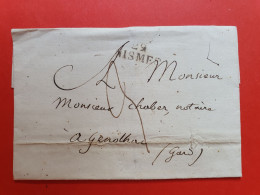 29
NISMES
A Monsieur
Monsieur chaber, notaire
a genolhac
(Gard)